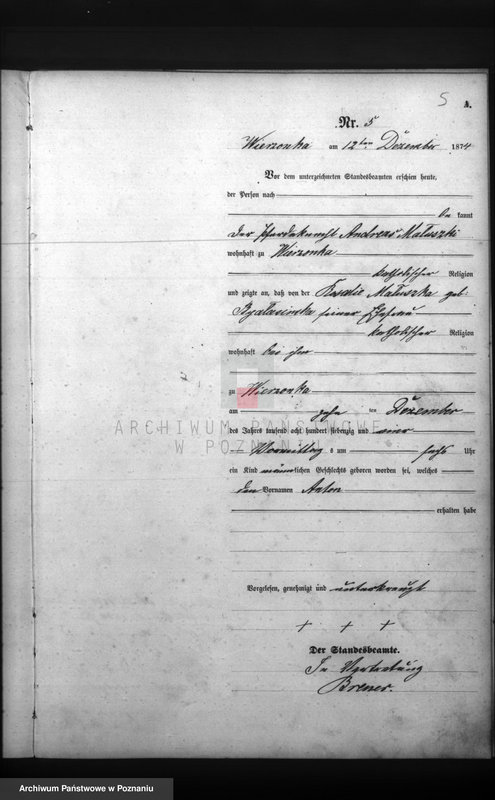 5
A.
Nr. 5
Wierzonka am 12ten Dezember 1874
Vor dem unterzeichneten Standesbeamten erschien heute,
der Person nach
be kannt
der Pferdeknecht Andreas Matuszki
wohnhaft zu Wierzonka
katholischer Religion
und zeigte an, daß von der Rosalie Matuszka geb:
seiner Ehefrau
katholischer Religion
wohnhaft bei ihm
zu Wierzonka
am zehn ten Dezember
des Jahres tausend acht hundert siebenzig und vier
Vormittag s um sechs Uhr
ein Kind männlichen Geschlechts geboren worden sei, welches
den Vornamen Anton
erhalten habe
ARCHIWUM PAŃSTWOWE
W POZNANIU
Vorgelesen, genehmigt und unterkreuzt
+ + +
Der Standesbeamte.
In Vertretung
Brener.
Archiwum Państwowe w Poznaniu